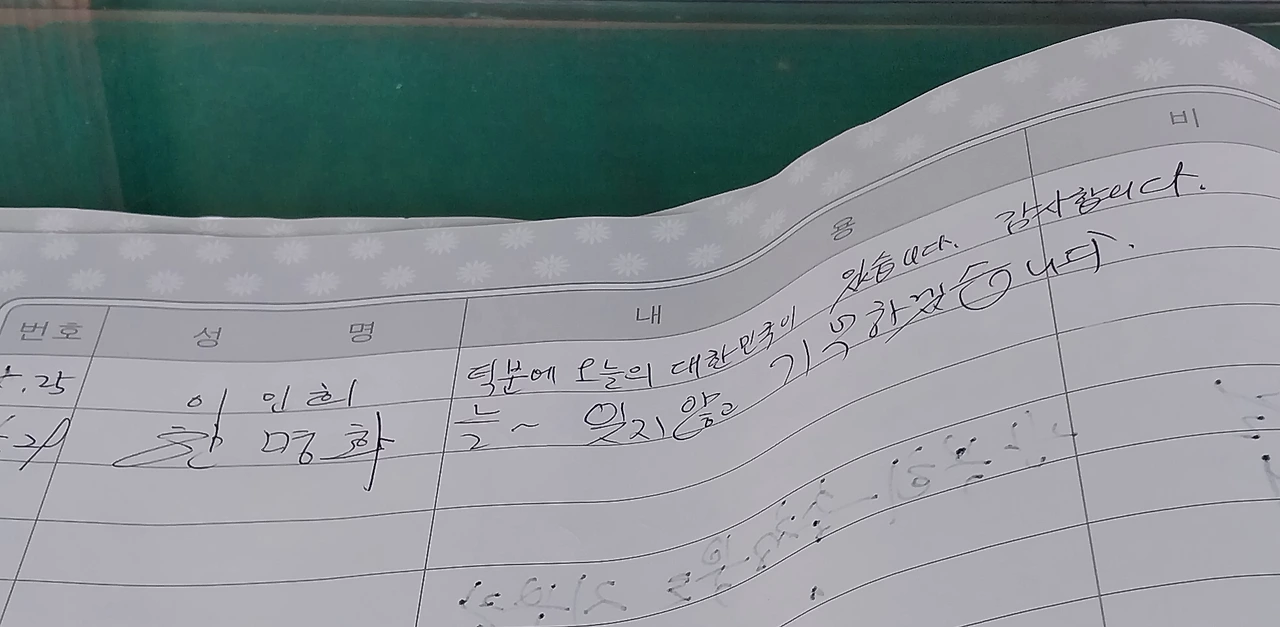 번호 성명 내용 비
.25 이인희 덕분에 오늘의 대한민국이 있습니다. 감사합니다.
한명화 늘~ 잊지않고 기억하겠습니다.